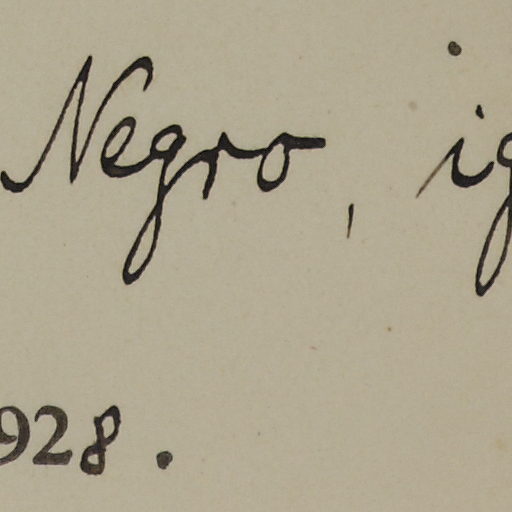 Negro, ig
928.